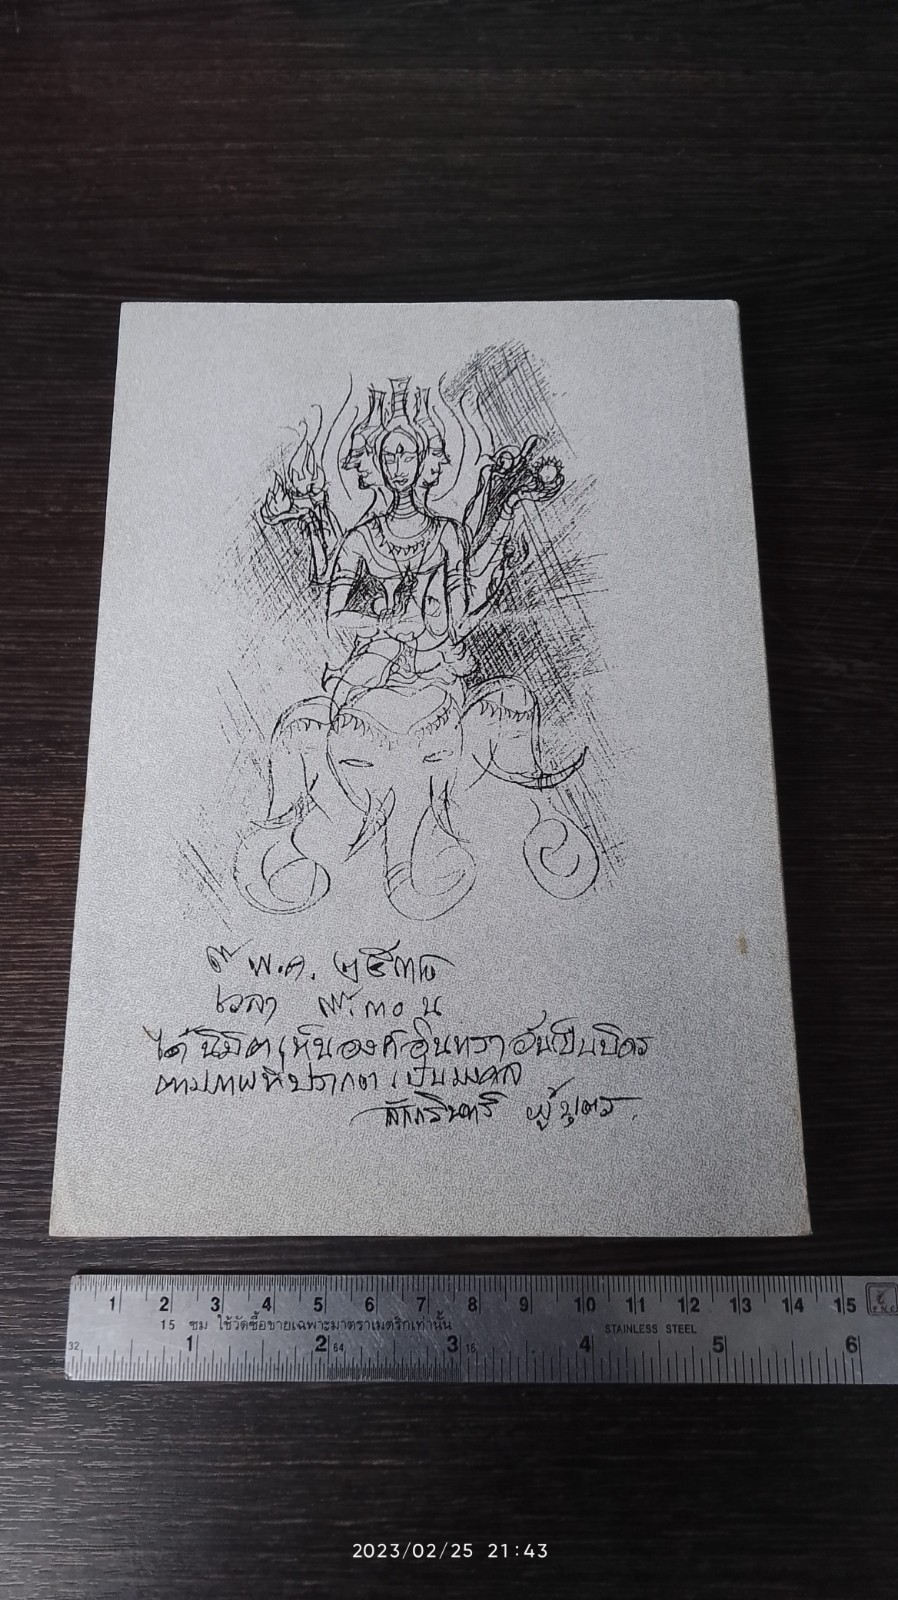 พ.ศ. ๒๕๓๘
เวลา น
ได้นิมิตเห็นองค์อินทราอันเป็นบิดร
ตามภาพที่ปรากฏ เป็นมงคล
ผู้บุตร
1 2 3 4 5 6 7 8 9 10 11 12 13 14 15
15 ซม ใช้วัดซื้อขายเฉพาะมาตราเมตริกเท่านั้น STAINLESS STEEL
32 1 2 64 3 16 4 5 6
2023/02/25 21:43